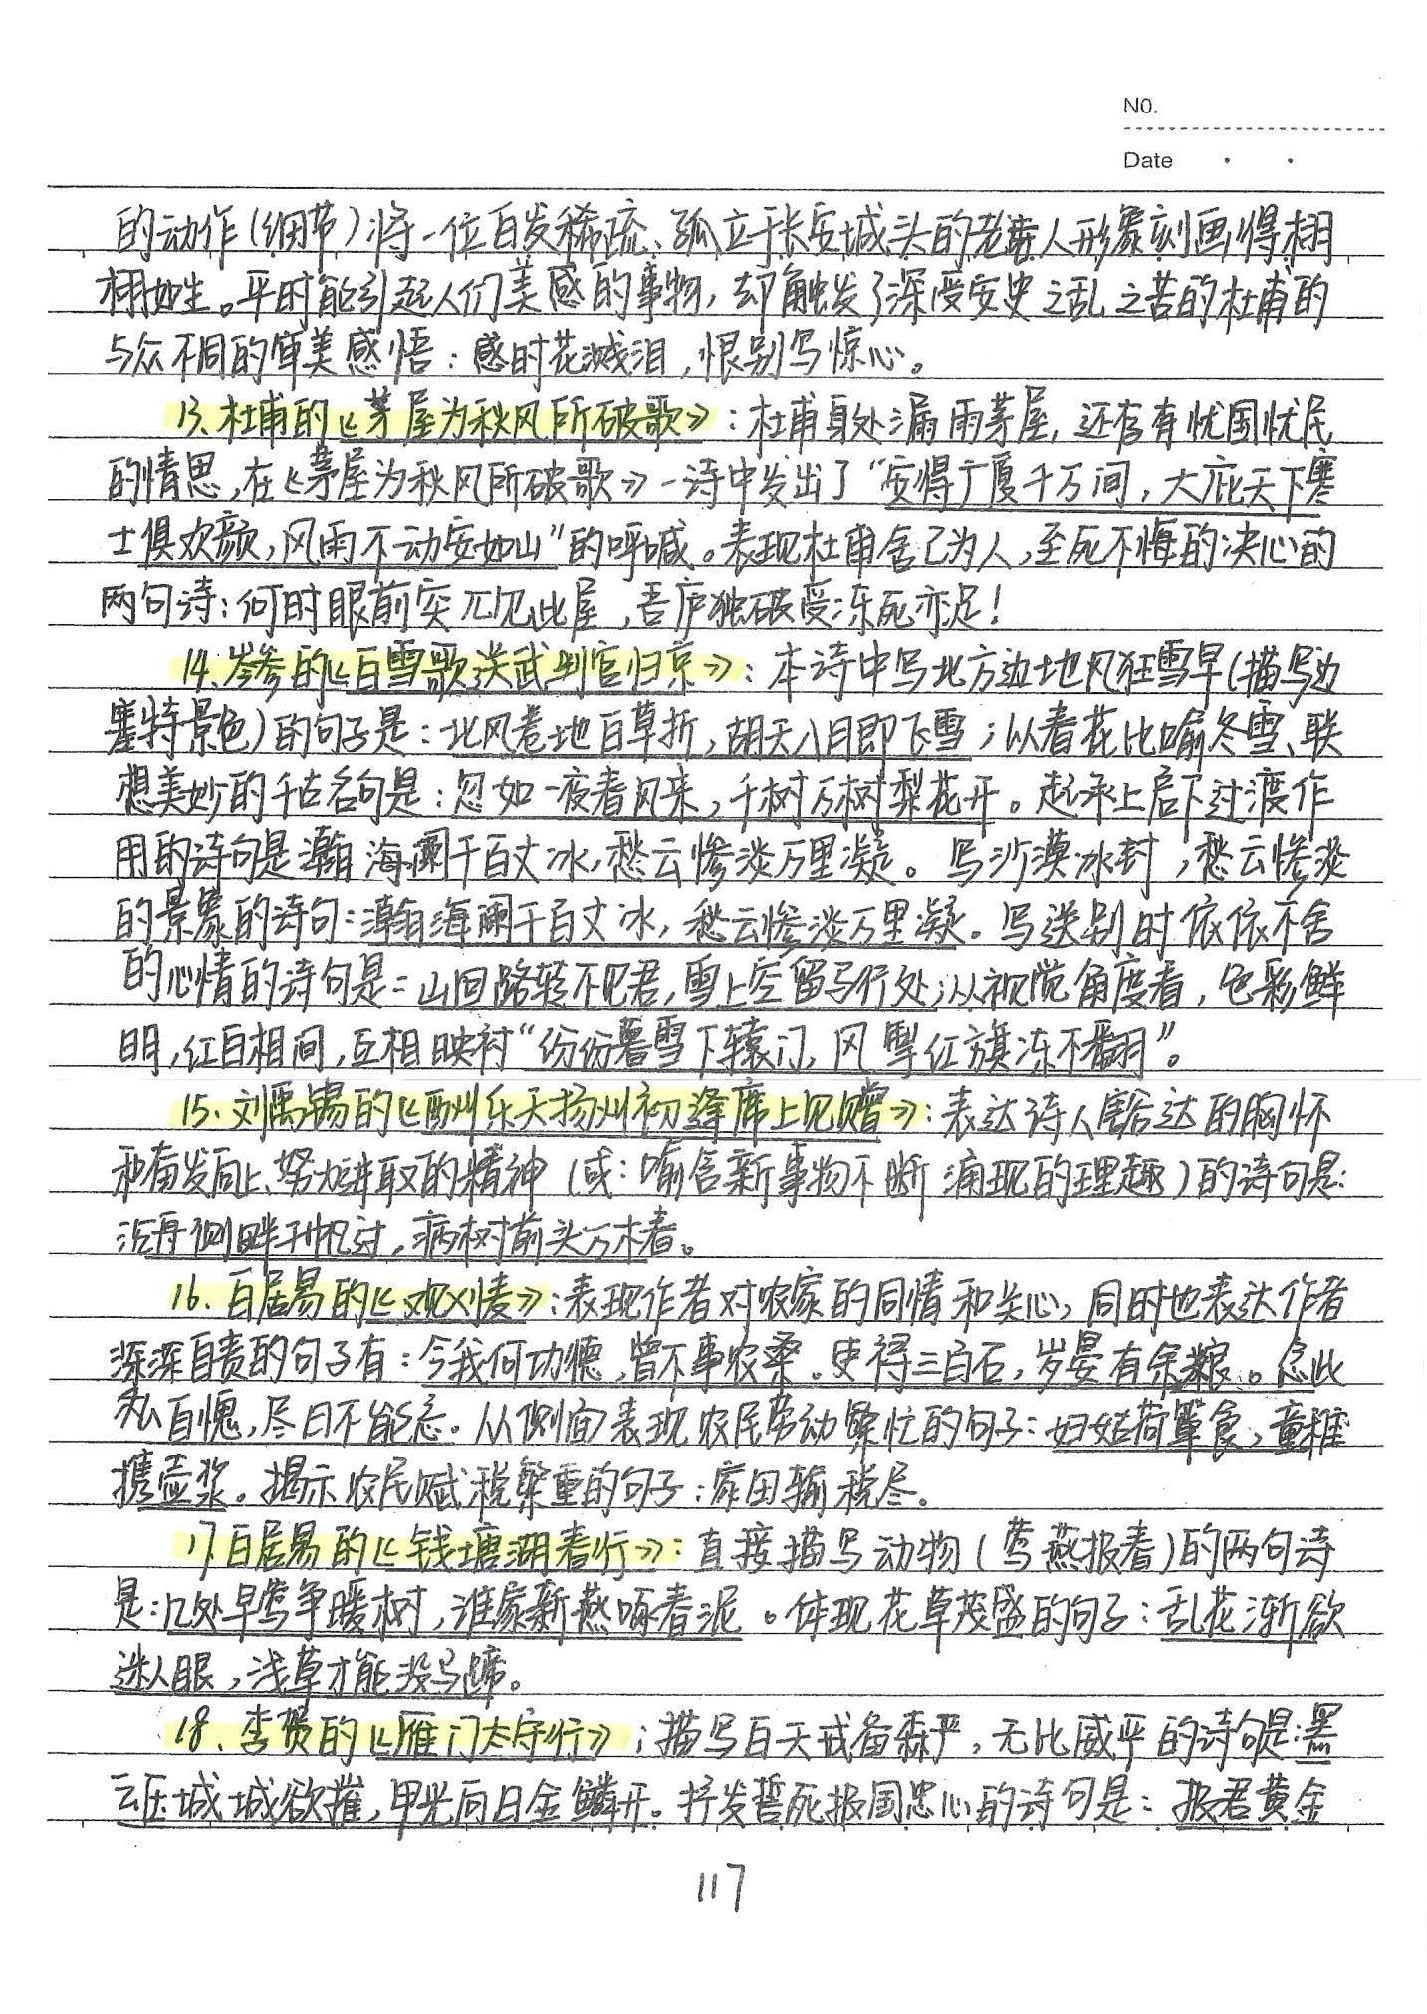 NO.
Date · ·
的动作(细节)将一位白发稀疏、孤立于长安城头的老人形象刻画得栩
栩如生。平时能引起人们美感的事物,却触发了深受安史之乱之苦的杜甫的
与众不同的审美感悟:感时花溅泪,恨别鸟惊心。
13.杜甫的《茅屋为秋风所破歌》:杜甫身处漏雨茅屋,还存有忧国忧民
的情思,在《茅屋为秋风所破歌》一诗中发出了“安得广厦千万间,大庇天下寒
士俱欢颜,风雨不动安如山”的呼喊。表现杜甫舍己为人,至死不悔的决心的
两句诗:何时眼前突兀见此屋,吾庐独破受冻死亦足!
14.岑参的《白雪歌送武判官归京》:本诗中写北方边地风狂雪早(描写边
塞特景色)的句子是:北风卷地百草折,胡天八月即飞雪;以春花比喻冬雪、联
想美妙的千古名句是:忽如一夜春风来,千树万树梨花开。起承上启下过渡作
用的诗句是瀚海阑干百丈冰,愁云惨淡万里凝。写沙漠冰封,愁云惨淡
的景象的诗句:瀚海阑干百丈冰,愁云惨淡万里凝。写送别时依依不舍
的心情的诗句是:山回路转不见君,雪上空留马行处;从视觉角度看,色彩鲜
明,红白相间,互相映衬“纷纷暮雪下辕门,风掣红旗冻不翻”。
15.刘禹锡的《酬州乐天扬州初逢席上见赠》:表达诗人豁达的胸怀
和奋发向上、努力进取的精神(或:喻含新事物不断涌现的理趣)的诗句是:
沉舟侧畔千帆过,病树前头万木春。
16.白居易的《观刈麦》:表现作者对农家的同情和关心,同时也表达作者
深深自责的句子有:今我何功德,曾不事农桑。吏禄三百石,岁晏有余粮。念此
私自愧,尽日不能忘。从侧面表现农民劳动繁忙的句子:妇姑荷箪食,童稚
携壶浆。揭示农民赋税繁重的句子:家田输税尽。
17.白居易的《钱塘湖春行》:直接描写动物(莺燕报春)的两句诗
是:几处早莺争暖树,谁家新燕啄春泥。体现花草茂盛的句子:乱花渐欲
迷人眼,浅草才能没马蹄。
18.李贺的《雁门太守行》;描写白天戒备森严,无比威严的诗句是:黑
云压城城欲摧,甲光向日金鳞开。抒发誓死报国忠心的诗句是:报君黄金
117